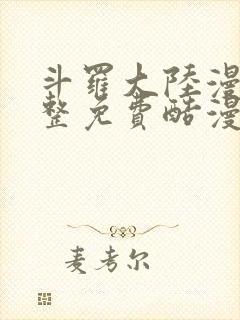 斗羅大陸漫
整免費酷漫
麦考尔